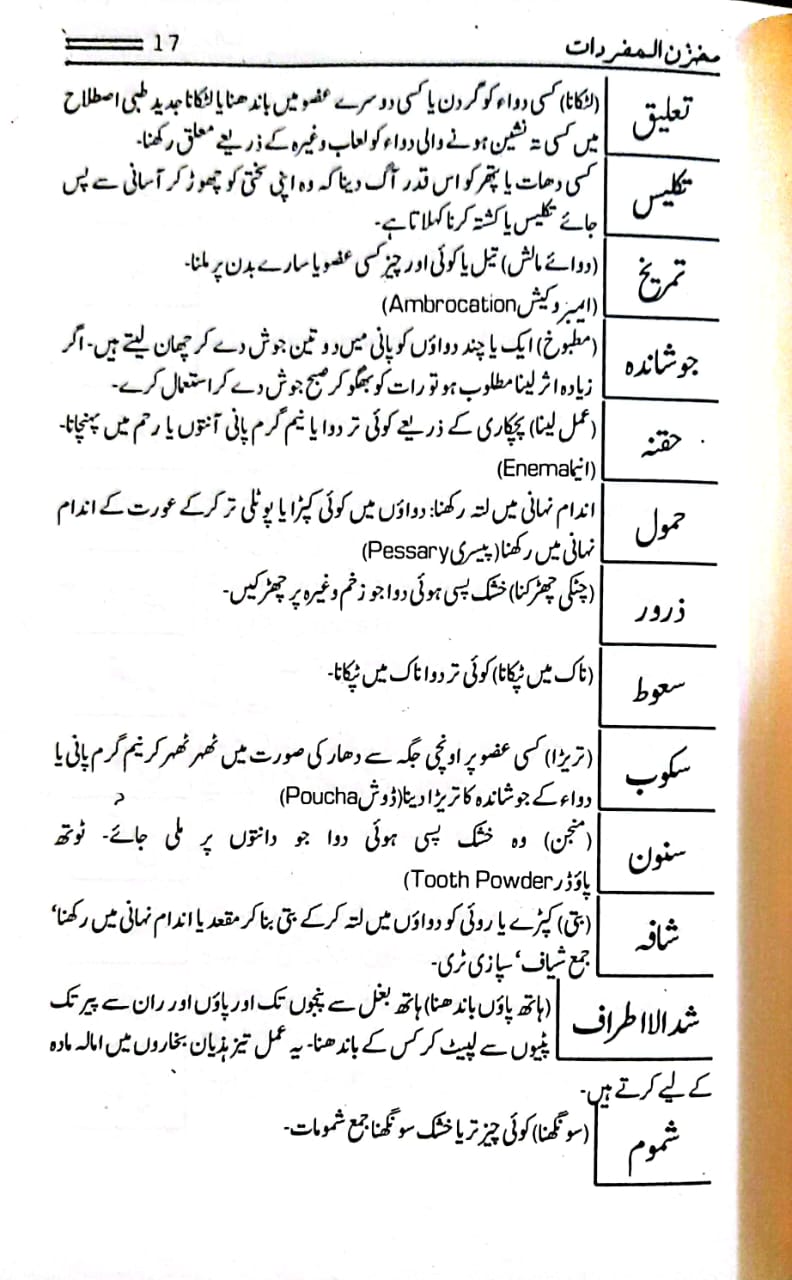 مخزن المفردات 17
تعلیق
(لٹکانا) کسی دواء کو گردن یا کسی دوسرے عضو میں باندھنا یا لٹکانا جدید طبی اصطلاح
میں کسی تہ نشین ہونے والی دواء کو لعاب وغیرہ کے ذریعے معلق رکھنا۔
تکلیس
کسی دھات یا پتھر کو اس قدر آگ دینا کہ وہ اپنی سختی کو چھوڑ کر آسانی سے پس
جائے تکلیس یا کشتہ کرنا کہلاتا ہے۔
تمریخ
(دوائے مالش) تیل یا کوئی اور چیز کسی عضو یا سارے بدن پر ملنا۔
(ایمبروکیش Ambrocation)
جوشاندہ
(مطبوخ) ایک یا چند دواؤں کو پانی میں دو تین جوش دے کر چھان لیتے ہیں۔ اگر
زیادہ اثر لینا مطلوب ہو تو رات کو بھگو کر صبح جوش دے کر استعمال کرے۔
حقنہ
(عمل لینا) پچکاری کے ذریعے کوئی تر دوا یا نیم گرم پانی آنتوں یا رحم میں پہنچانا۔
(انیما Enema)
حمول
اندام نہانی میں لتہ رکھنا: دواؤں میں کوئی کپڑا یا پوٹلی تر کرکے عورت کے اندام
نہانی میں رکھنا (پیسری Pessary)
ذرور
(چٹکی چھڑکنا) خشک پسی ہوئی دوا جو زخم وغیرہ پر چھڑکیں۔
سعوط
(ناک میں ٹپکانا) کوئی تر دوا ناک میں ٹپکانا۔
سکوب
(تریڑا) کسی عضو پر اونچی جگہ سے دھار کی صورت میں ٹھہر ٹھہر کر نیم گرم پانی یا
دواء کے جوشاندہ کا تریڑا دینا (ڈوش Poucha)
سنون
(منجن) وہ خشک پسی ہوئی دوا جو دانتوں پر ملی جائے۔ ٹوتھ
پاؤڈر Tooth Powder)
شافہ
(بتی) کپڑے یا روئی کو دواؤں میں لتہ کرکے بتی بنا کر مقعد یا اندام نہانی میں رکھنا‘
جمع شیاف‘ سپازی ٹری۔
شد الااطراف
(ہاتھ پاؤں باندھنا) ہاتھ بغل سے پنجوں تک اور پاؤں اور ران سے پیر تک
پٹیوں سے لپیٹ کر کس کے باندھنا۔ یہ عمل تیز ہذیان بخاروں میں امالہ مادہ
کے لیے کرتے ہیں۔
شموم
(سونگھنا) کوئی چیز تر یا خشک سونگھنا جمع شمومات۔